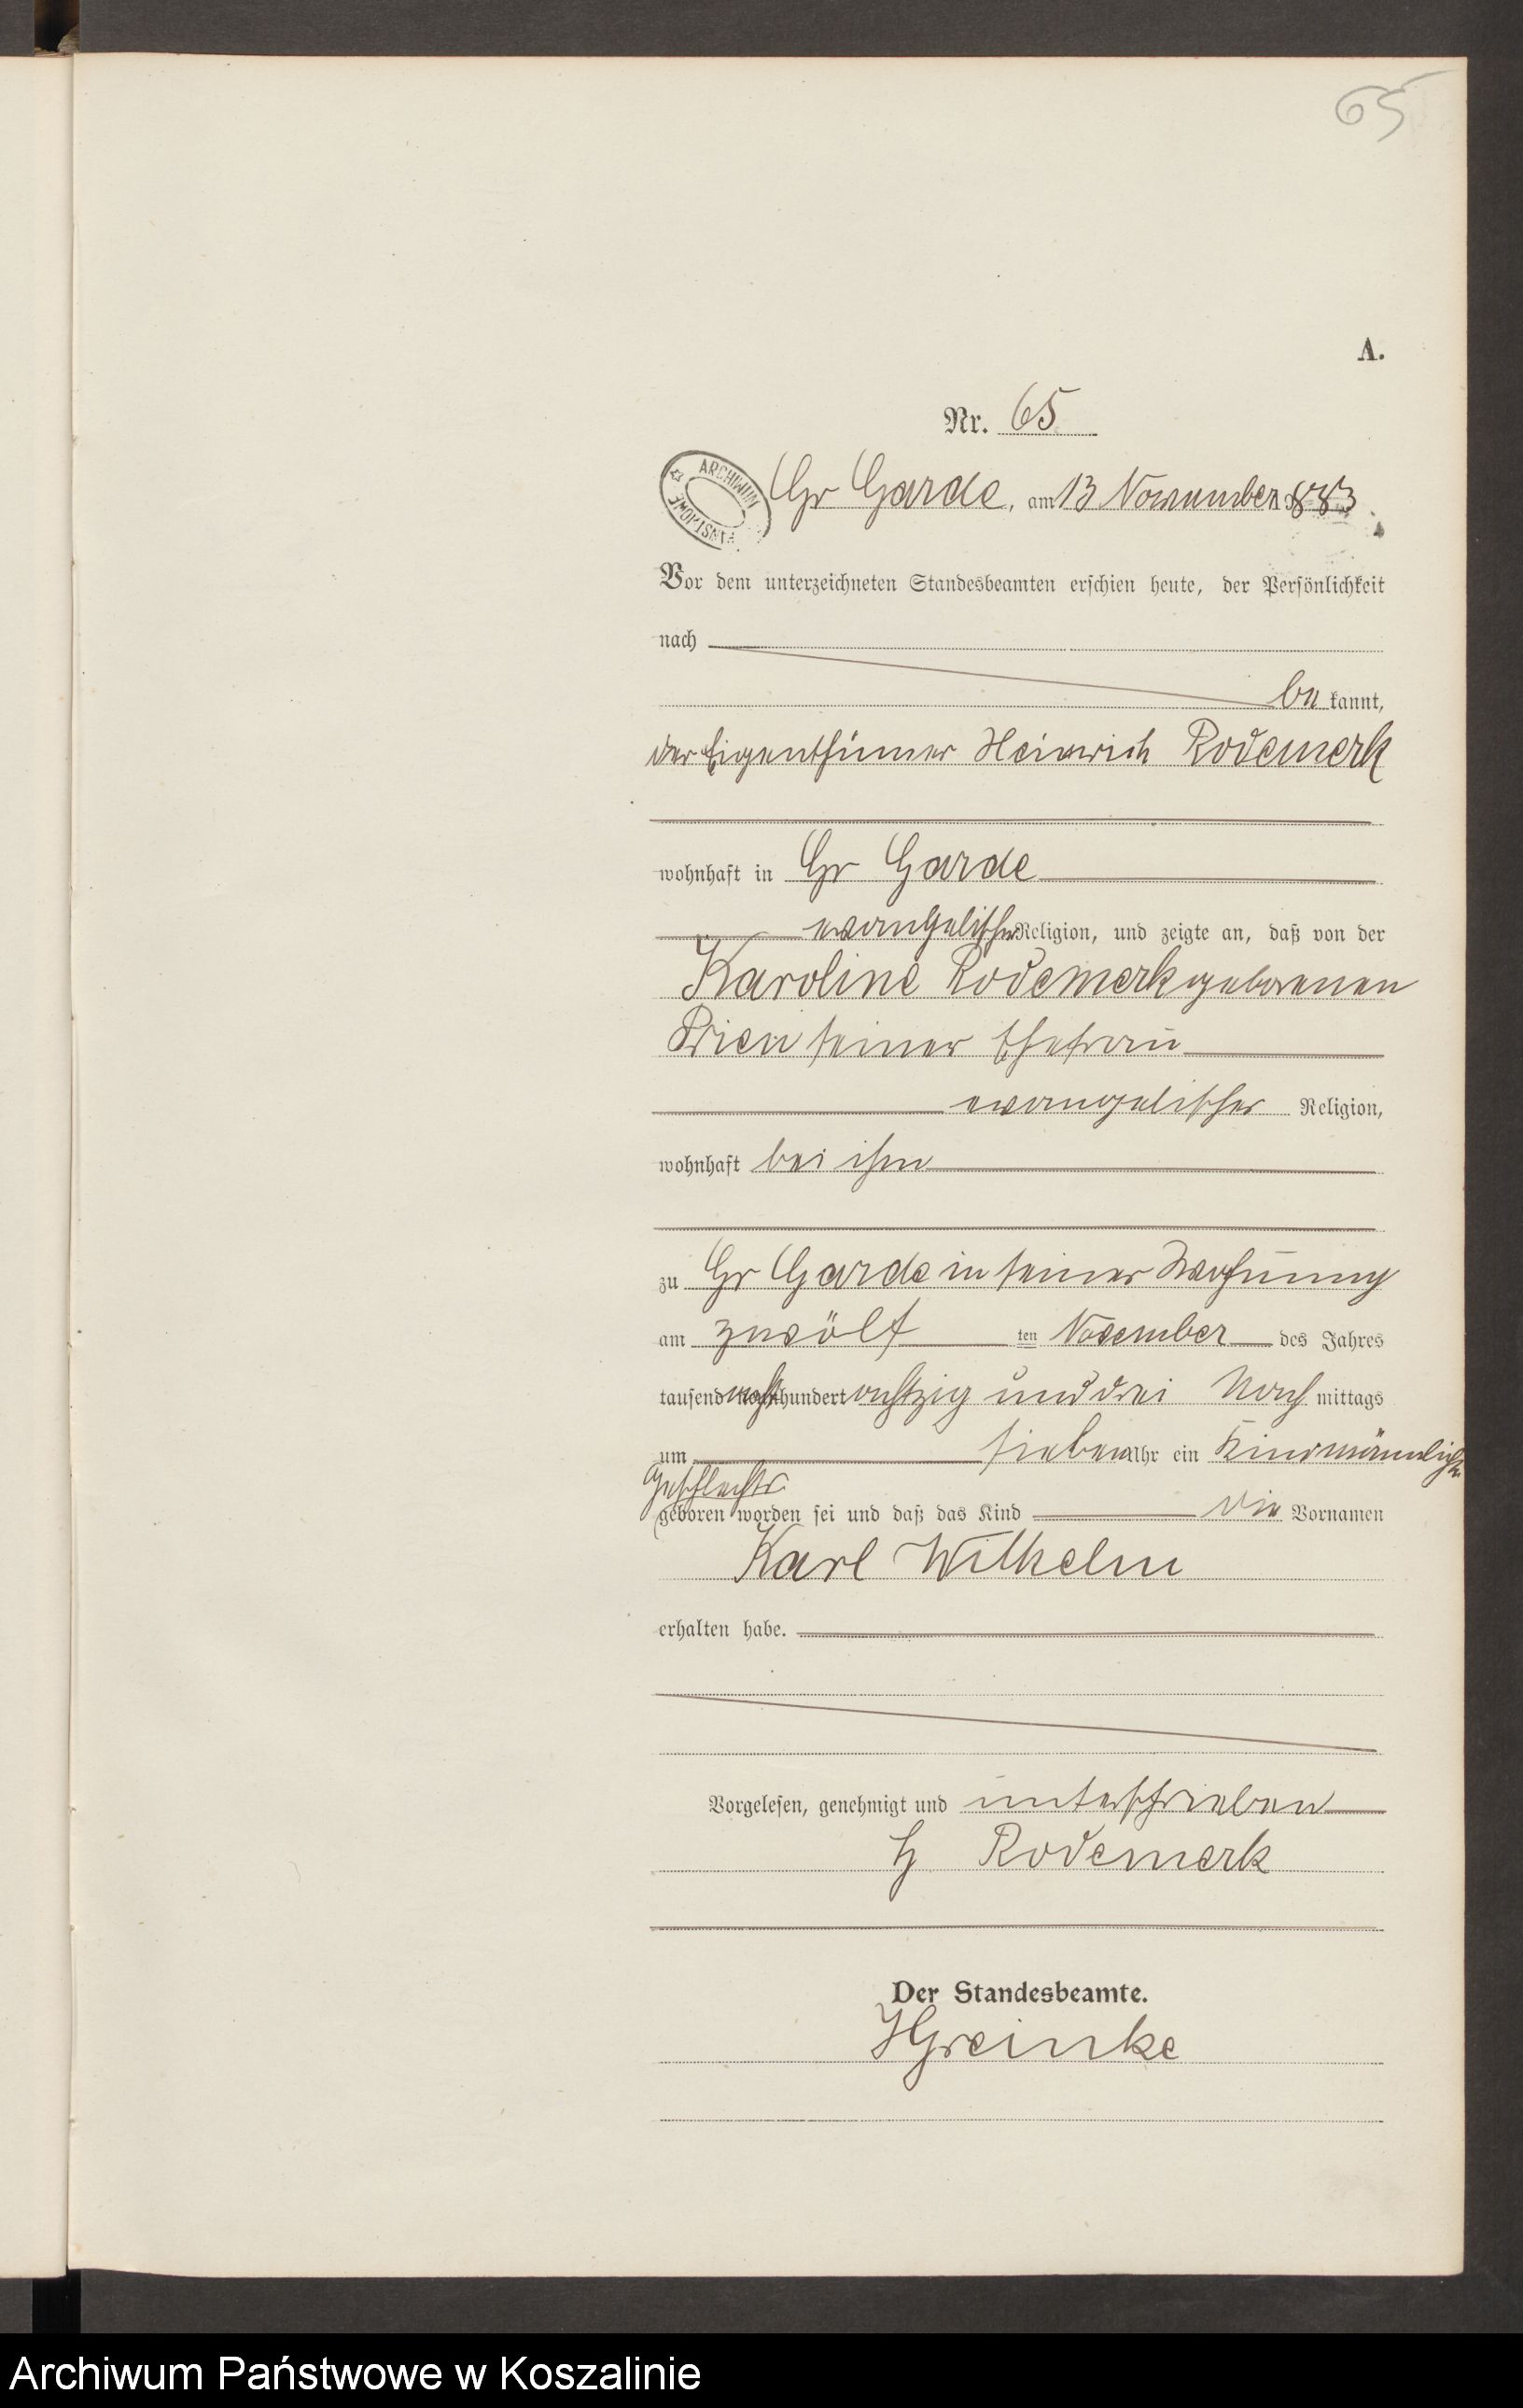 65
A.
Nr. 65
ARCHIWUM PAŃSTWOWE
Gr Garde, am 13 November 1883
Vor dem unterzeichneten Standesbeamten erschien heute, der Persönlichkeit
nach
bekannt,
der Eigenthümer Heinrich Rodemerk
wohnhaft in Gr Garde
evangelischer Religion, und zeigte an, daß von der
Karoline Rodemerk geborenen
Prien seiner Ehefrau
evangelischer Religion,
wohnhaft bei ihm
zu Gr Garde in seiner Wohnung
am zwölf ten November des Jahres
tausend acht hundert achtzig und drei Nach mittags
um sieben Uhr ein Kind männlichen
Geschlechts
geboren worden sei und daß das Kind die Vornamen
Karl Wilhelm
erhalten habe.
Vorgelesen, genehmigt und unterschrieben
H Rodemerk
Der Standesbeamte.
HGreinke
Archiwum Państwowe w Koszalinie